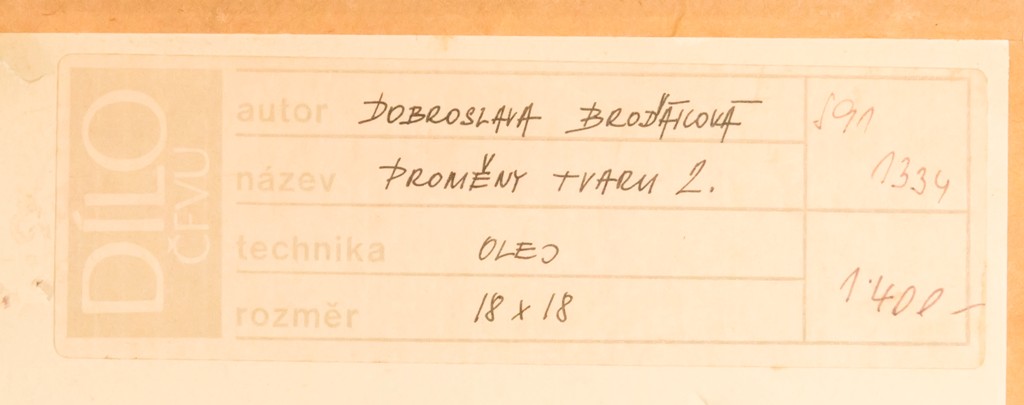 DÍLO
ČFVU
autor DOBROSLAVA BROĎÁKOVÁ
název PROMĚNY TVARU 2.
technika OLEJ
rozměr 18 x 18
591
1334
1.400-